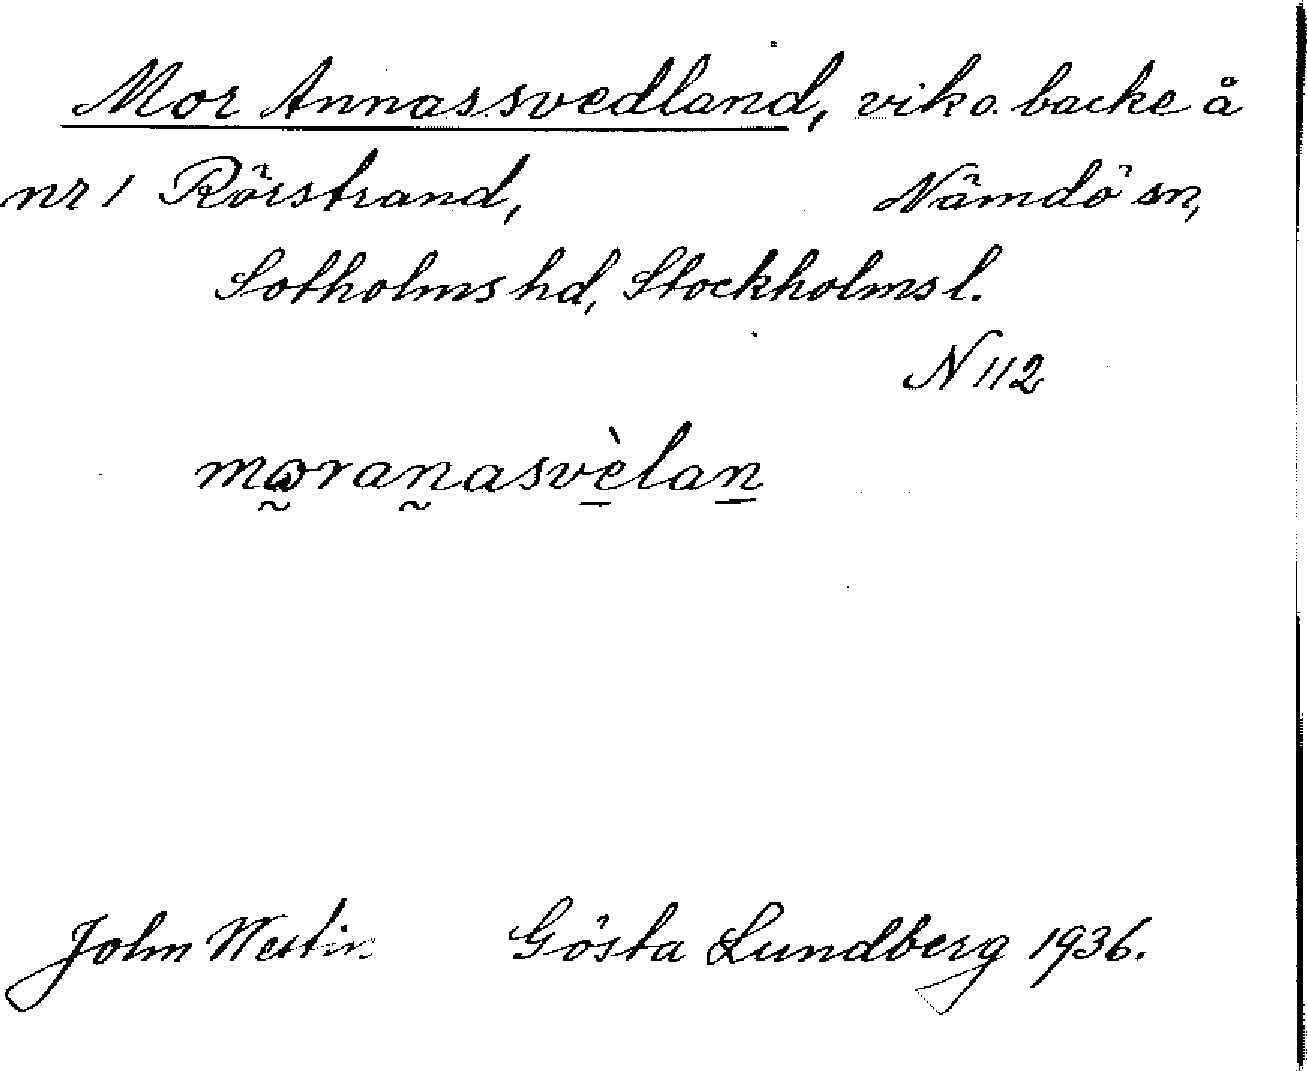 Mor Annassvedland, vik o. backe å
nr 1 Rörstrand, Nämdö sn,
Sotholms hd, Stockholms l.
N 112
moranasvèlan
John Westin Gösta Lundberg 1936.